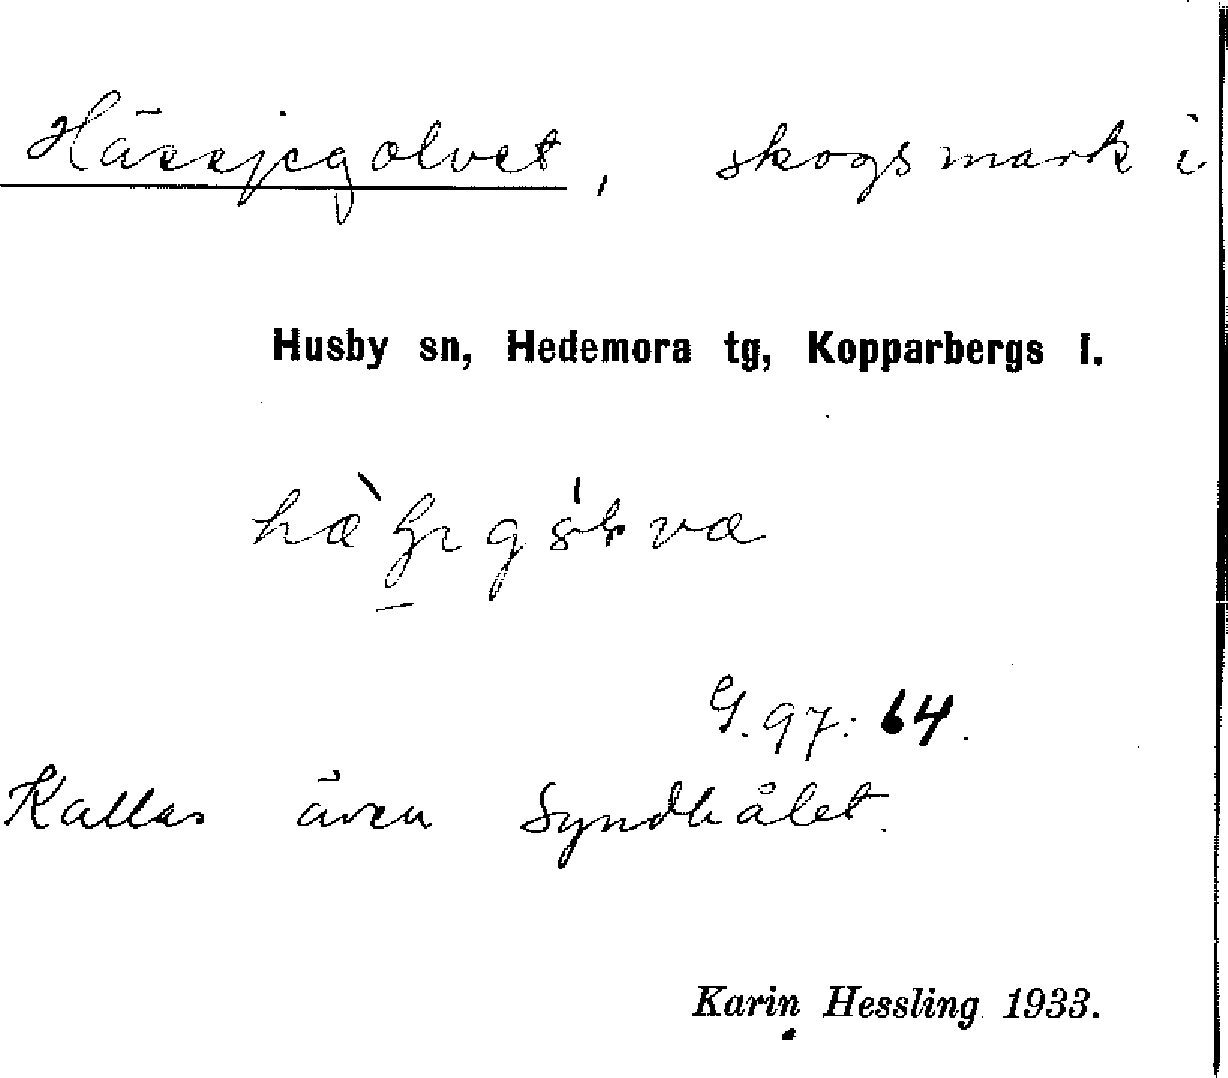 Hässjegolvet, skogsmark i
Husby sn, Hedemora tg, Kopparbergs l.
G. 97: 64.
Kallas även Syndhålet.
Karin Hessling 1933.